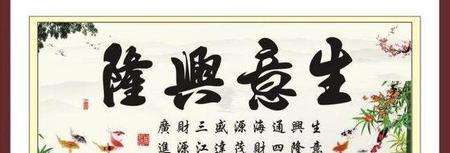 生意興隆
生意
興隆
通四
海財
源茂
盛達
三江
財源
廣進